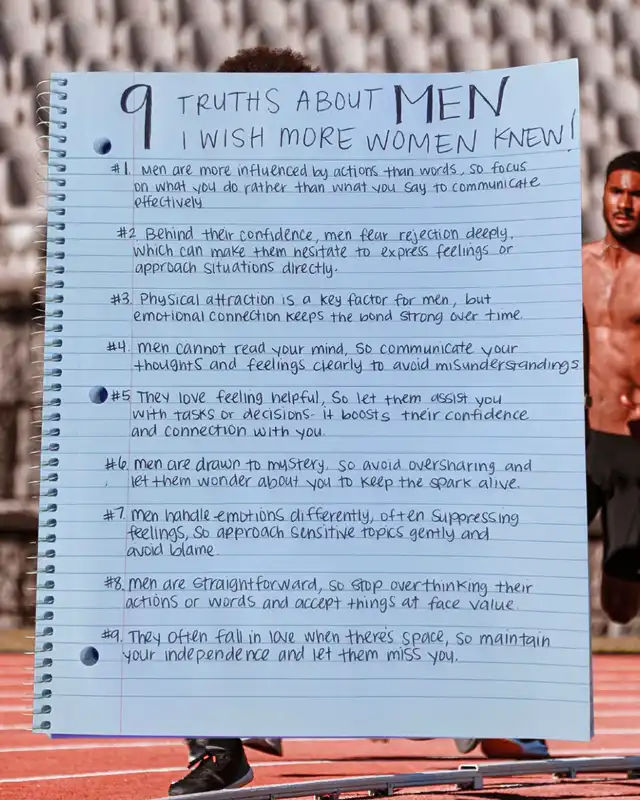 9 TRUTHS ABOUT MEN
I WISH MORE WOMEN KNEW!
#1. Men are more influenced by actions than words, so focus
on what you do rather than what you say to communicate
effectively
#2. Behind their confidence, men fear rejection deeply,
which can make them hesitate to express feelings or
approach situations directly.
#3. Physical attraction is a key factor for men, but
emotional connection keeps the bond strong over time.
#4. men cannot read your mind, so communicate your
thoughts and feelings clearly to avoid misunderstandings
#5 They love feeling helpful, so let them assist you
with tasks or decisions- it boosts their confidence
and connection with you.
#6. men are drawn to mystery, so avoid oversharing and
let them wonder about you to keep the spark alive.
#7. men handle emotions differently, often suppressing
feelings, so approach sensitive topics gently and
avoid blame.
#8. men are straightforward, so stop overthinking their
actions or words and accept things at face value.
#9. They often fall in love when there's space, so maintain
your independence and let them miss you.